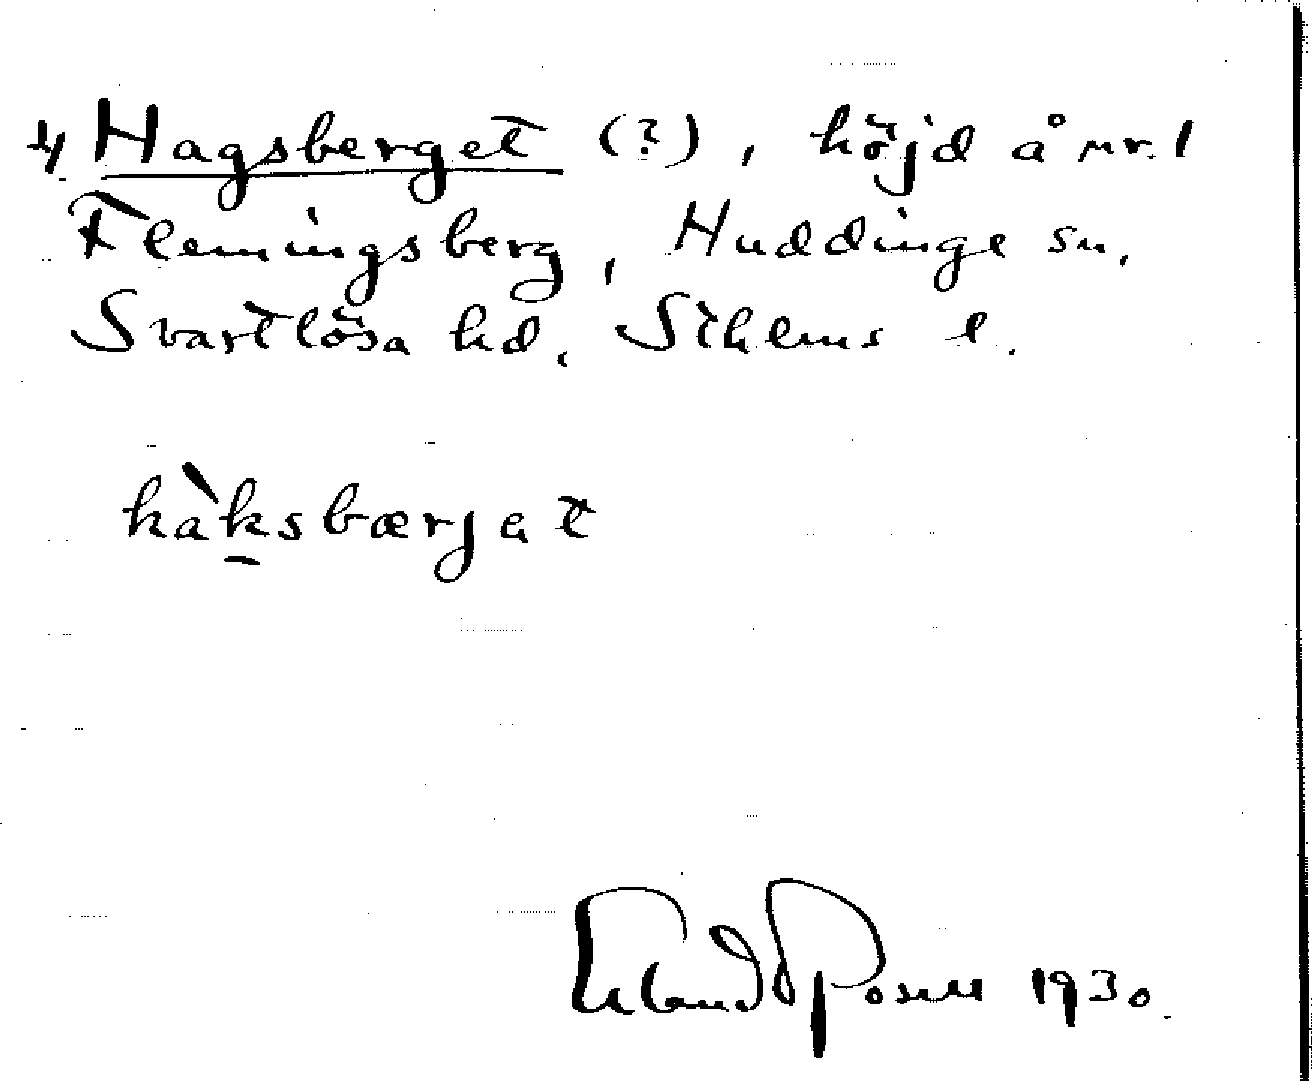 4) Hagsberget (?), höjd å nr. 1
Flemingsberg, Huddinge sn,
Svartlösa hd, Sthlms l.
hàksbærjat
Erland Rosell 1930.